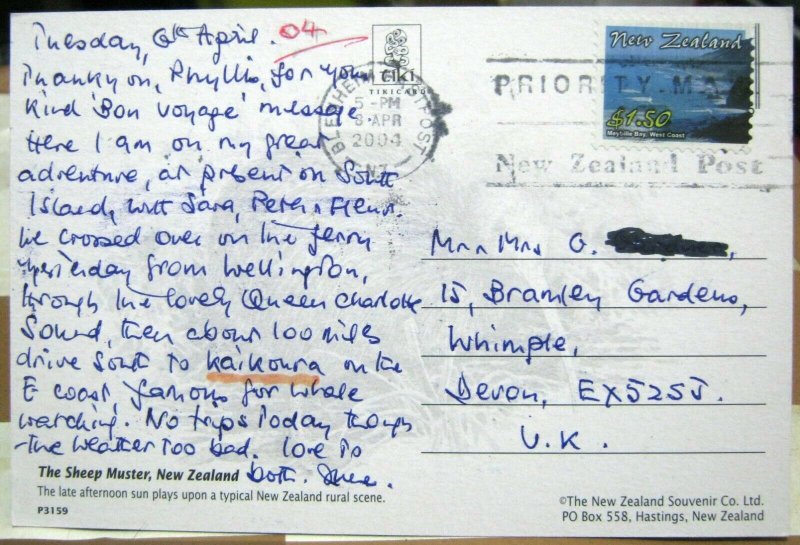 Tuesday, 6th April. 04
Thankyou, Phyllis, for your
kind 'Bon Voyage' message
Here I am on my great
adventure, at present on South
Island, with Sara, Peter & Fleur.
We crossed over on the ferry
yesterday from Wellington,
through the lovely Queen Charlotte
Sound, then about 100 miles
drive South to Kaikoura on the
E coast, famous for whale
watching. No trips today though
- the weather too bad. Love to
both.
The Sheep Muster, New Zealand
The late afternoon sun plays upon a typical New Zealand rural scene.
P3159
tiki
TIKICARD
BLENHEIM
5 -PM
8 APR
2004
NZ
New Zealand
$1.50
Meybille Bay, West Coast
PRIORITY MA
New Zealand Post
Mr & Mrs G.
15, Bramley Gardens,
Whimple,
Devon, EX5 2SJ.
U.K.
©The New Zealand Souvenir Co. Ltd.
PO Box 558, Hastings, New Zealand